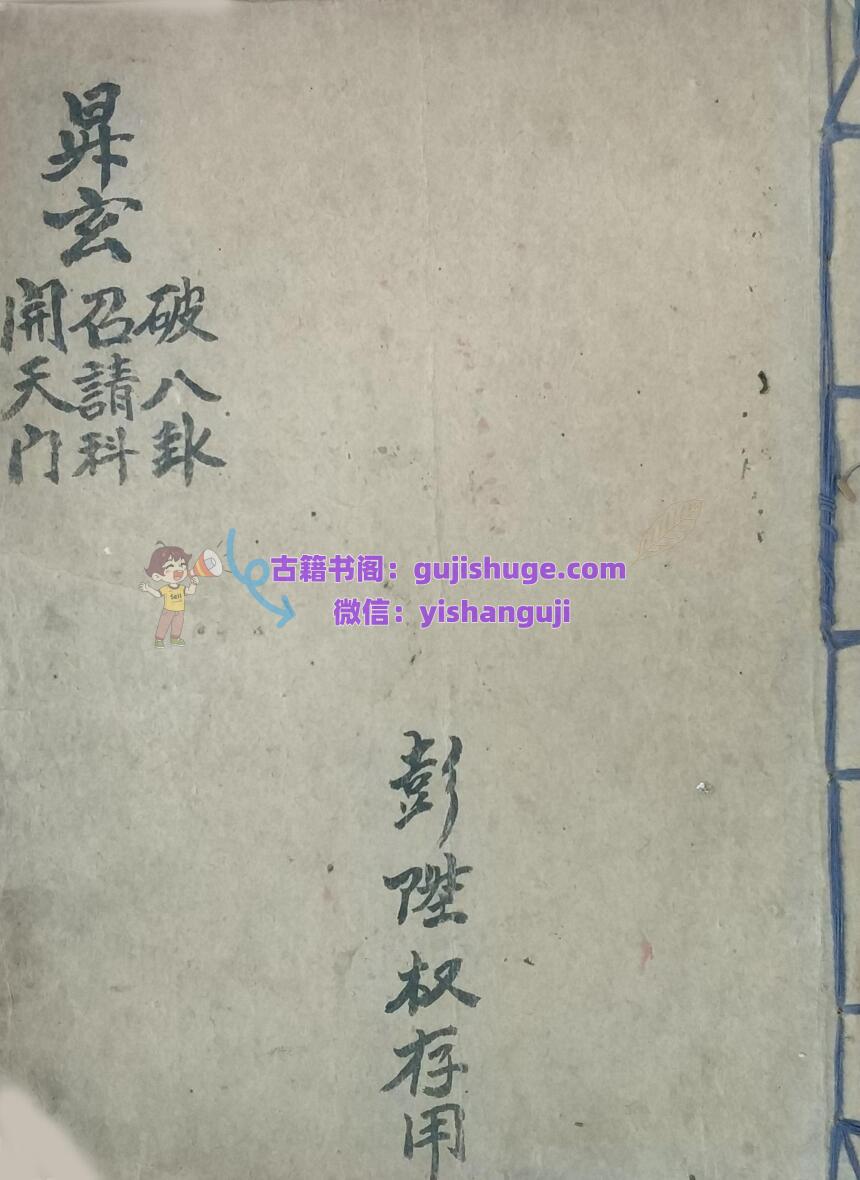 昇玄
破八卦
召請科
開天门
古籍书阁：gujishuge.com
微信：yishanguji
Sell
彭陞权存用